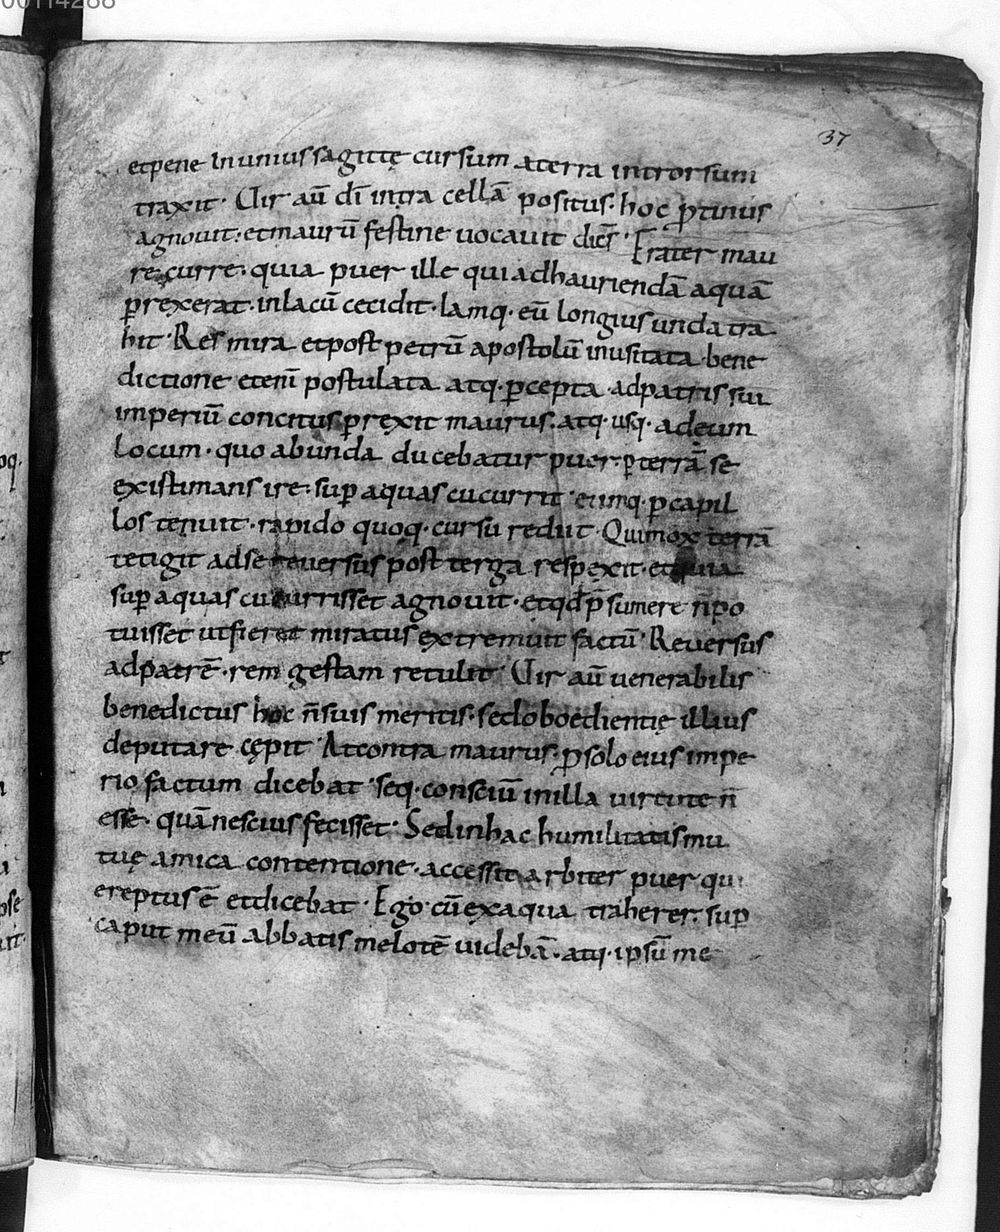 00114288
37
et pene in unius sagittę cursum a terra introrsum
traxit· Uir aū dī intra cellā positus· hoc ꝓtinus
agnouit· et maurū festine uocauit dicēs· Frater mau
re curre· quia puer ille qui ad hauriendā aquā
ꝑrexerat· in lacū cecidit· Iamq· eū longius unda tra
hit· Res mira et post petrū apostolū inusitata· bene
dictione etenī postulata atq· ꝑcepta· ad patris sui
imperiū concitus ꝑrexit maurus· atq· usq· ad eum
locum· quo ab unda ducebatur puer· ꝑ terrā se
existimans ire· suꝑ aquas cucurrit· eumq· ꝑ capil
los tenuit· rapido quoq· cursu rediit· Qui mox terrā
tetigit ad se reuersus post terga respexit· et quia
suꝑ aquas cucurrisset agnouit· et qd p̄sumere n̄ po
tuisset ut fieret miratus extremuit factū· Reuersus
ad patrē· rem gestam retulit· Uir aū uenerabilis
benedictus hoc n̄ suis meritis· sed oboedientię illius
deputare cępit· At contra maurus· ꝓ solo eius impe
rio factum dicebat· seq· consciū in illa uirtute n̄
esse· quā nescius fecisset· Sed in hac humilitatis mu
tuę amica contentione· accessit arbiter puer qui
ereptus ē et dicebat· Ego cū ex aqua traherer· suꝑ
caput meū abbatis melotē uidebā· atq· ipsū me